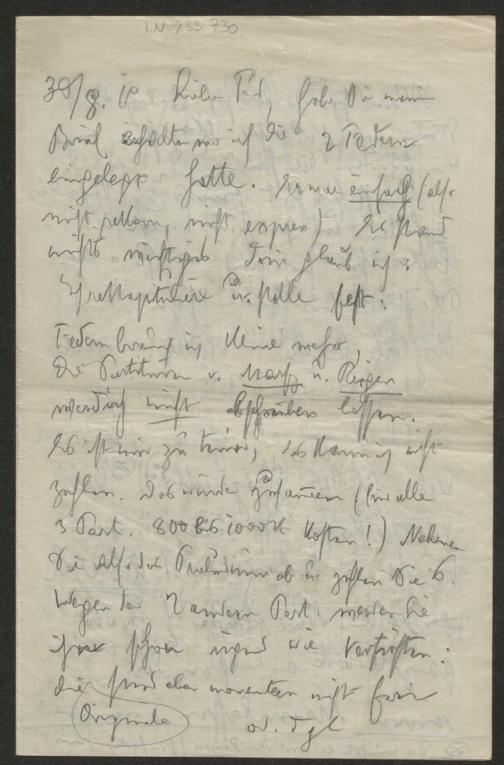 I.N. 733.730
30/8. 18 Lieber Frd, habe Sie mein
Brief erhalten wo ich die 2 Federn
eingelegt hatte. Er war einfach (also
nicht rekom, nicht expres) Es stand
nichts wichtiges drin glaub ich:
Ich rekapituliere u. stelle fest:
Federn brauch ich keine mehr,
Die Partituren v. Marsch u. Reigen
werd ich nicht abschreiben lassen.
Es ist mir zu teuer, das kann ich nicht
zahlen. Das würde zusammen (für alle
3 Part. 800 bis 1000 K kosten!) Nehmen
Sie also das Praeludium ab u. zahlen Sie 6.
Wegen der 2 andern Part. werden Sie
schon irgend wie vertrösten:
die sind eben momentan nicht frei
Originale od. dgl